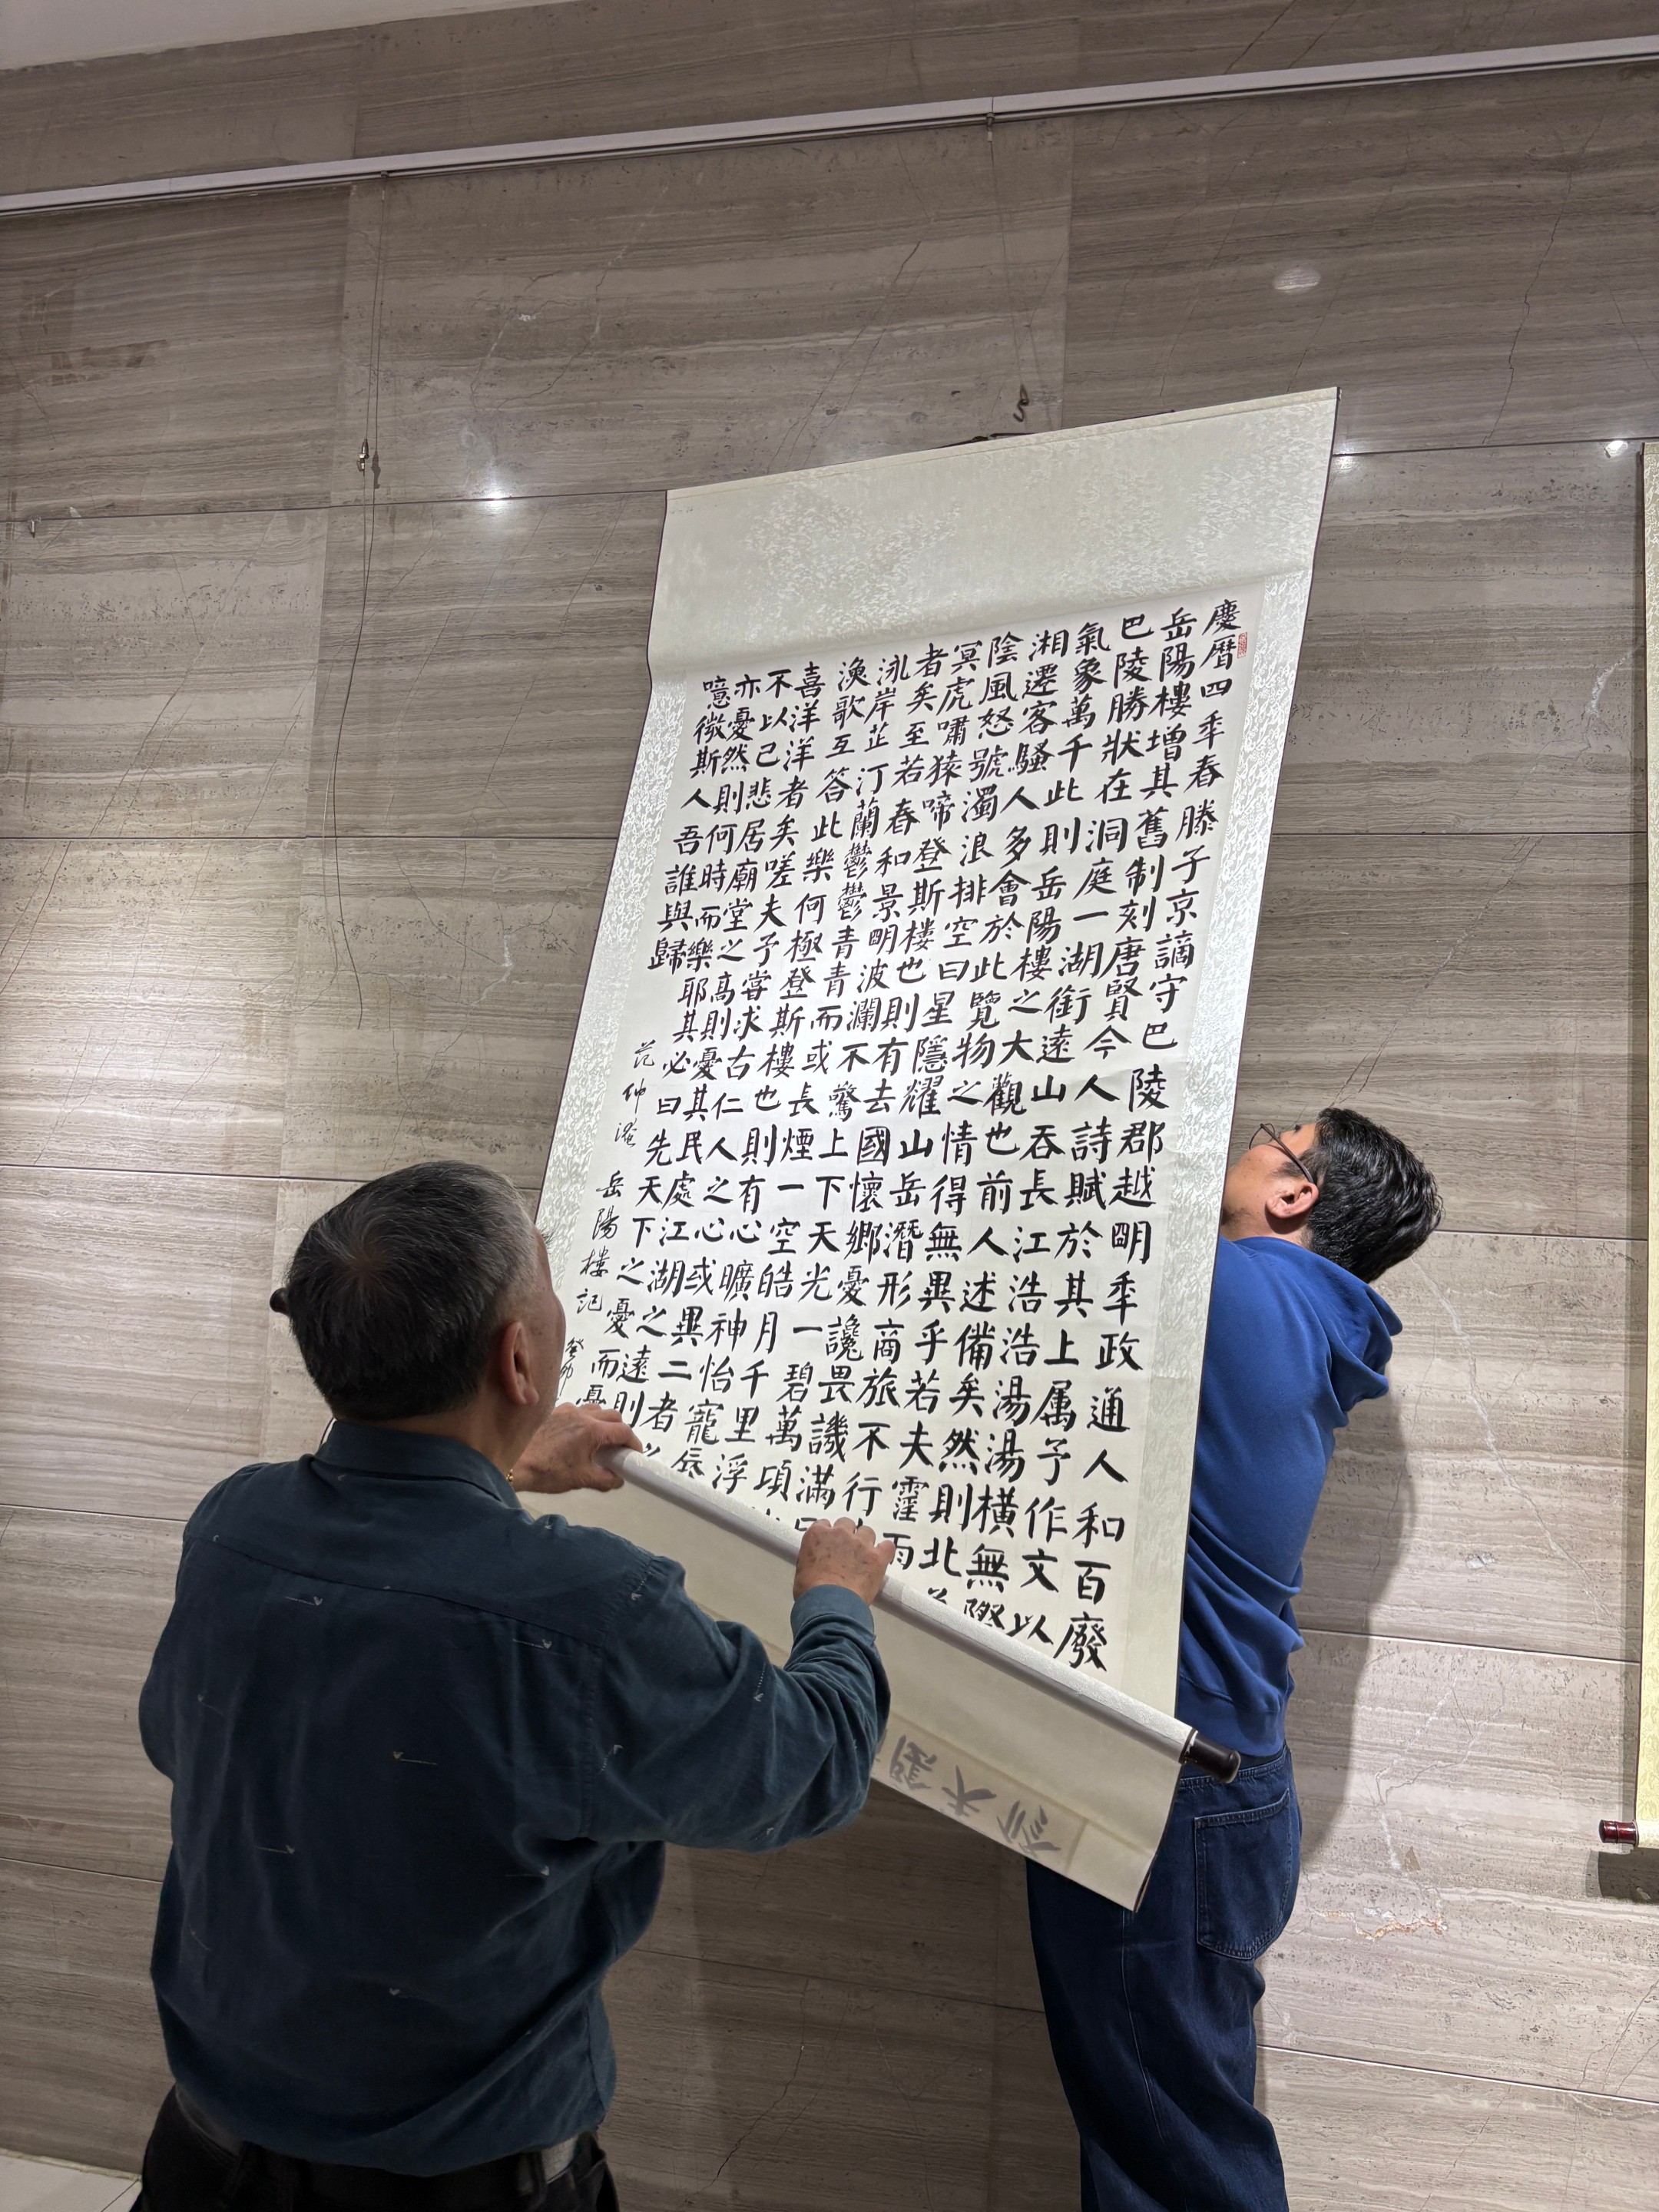 慶曆四秊春滕子京謫守巴陵郡越明秊政通人和百廢
岳陽樓增其舊制刻唐賢今人詩賦於其上属予作文以
巴陵勝狀在洞庭一湖銜遠山吞長江浩浩湯湯橫無際
氣象萬千此則岳陽樓之大觀也前人述備矣然則北
湘遷客騷人多會於此覽物之情得無異乎若夫霪雨
陰風怒號濁浪排空日星隱耀山岳潛形商旅不行
冥虎嘯猿啼登斯樓也則有去國懷鄉憂讒畏譏滿
者矣至若春和景明波瀾不驚上下天光一碧萬頃
泳岸芷汀蘭鬱鬱青青而或長煙一空皓月千里浮
漁歌互答此樂何極登斯樓也則有心曠神怡寵辱
喜洋洋者矣嗟夫予嘗求古仁人之心或異二者之
不以己悲居廟堂之高則憂其民處江湖之遠則
亦憂然則何時而樂耶其必曰先天下之憂而憂
噫微斯人吾誰與歸
范仲淹岳陽樓記癸卯